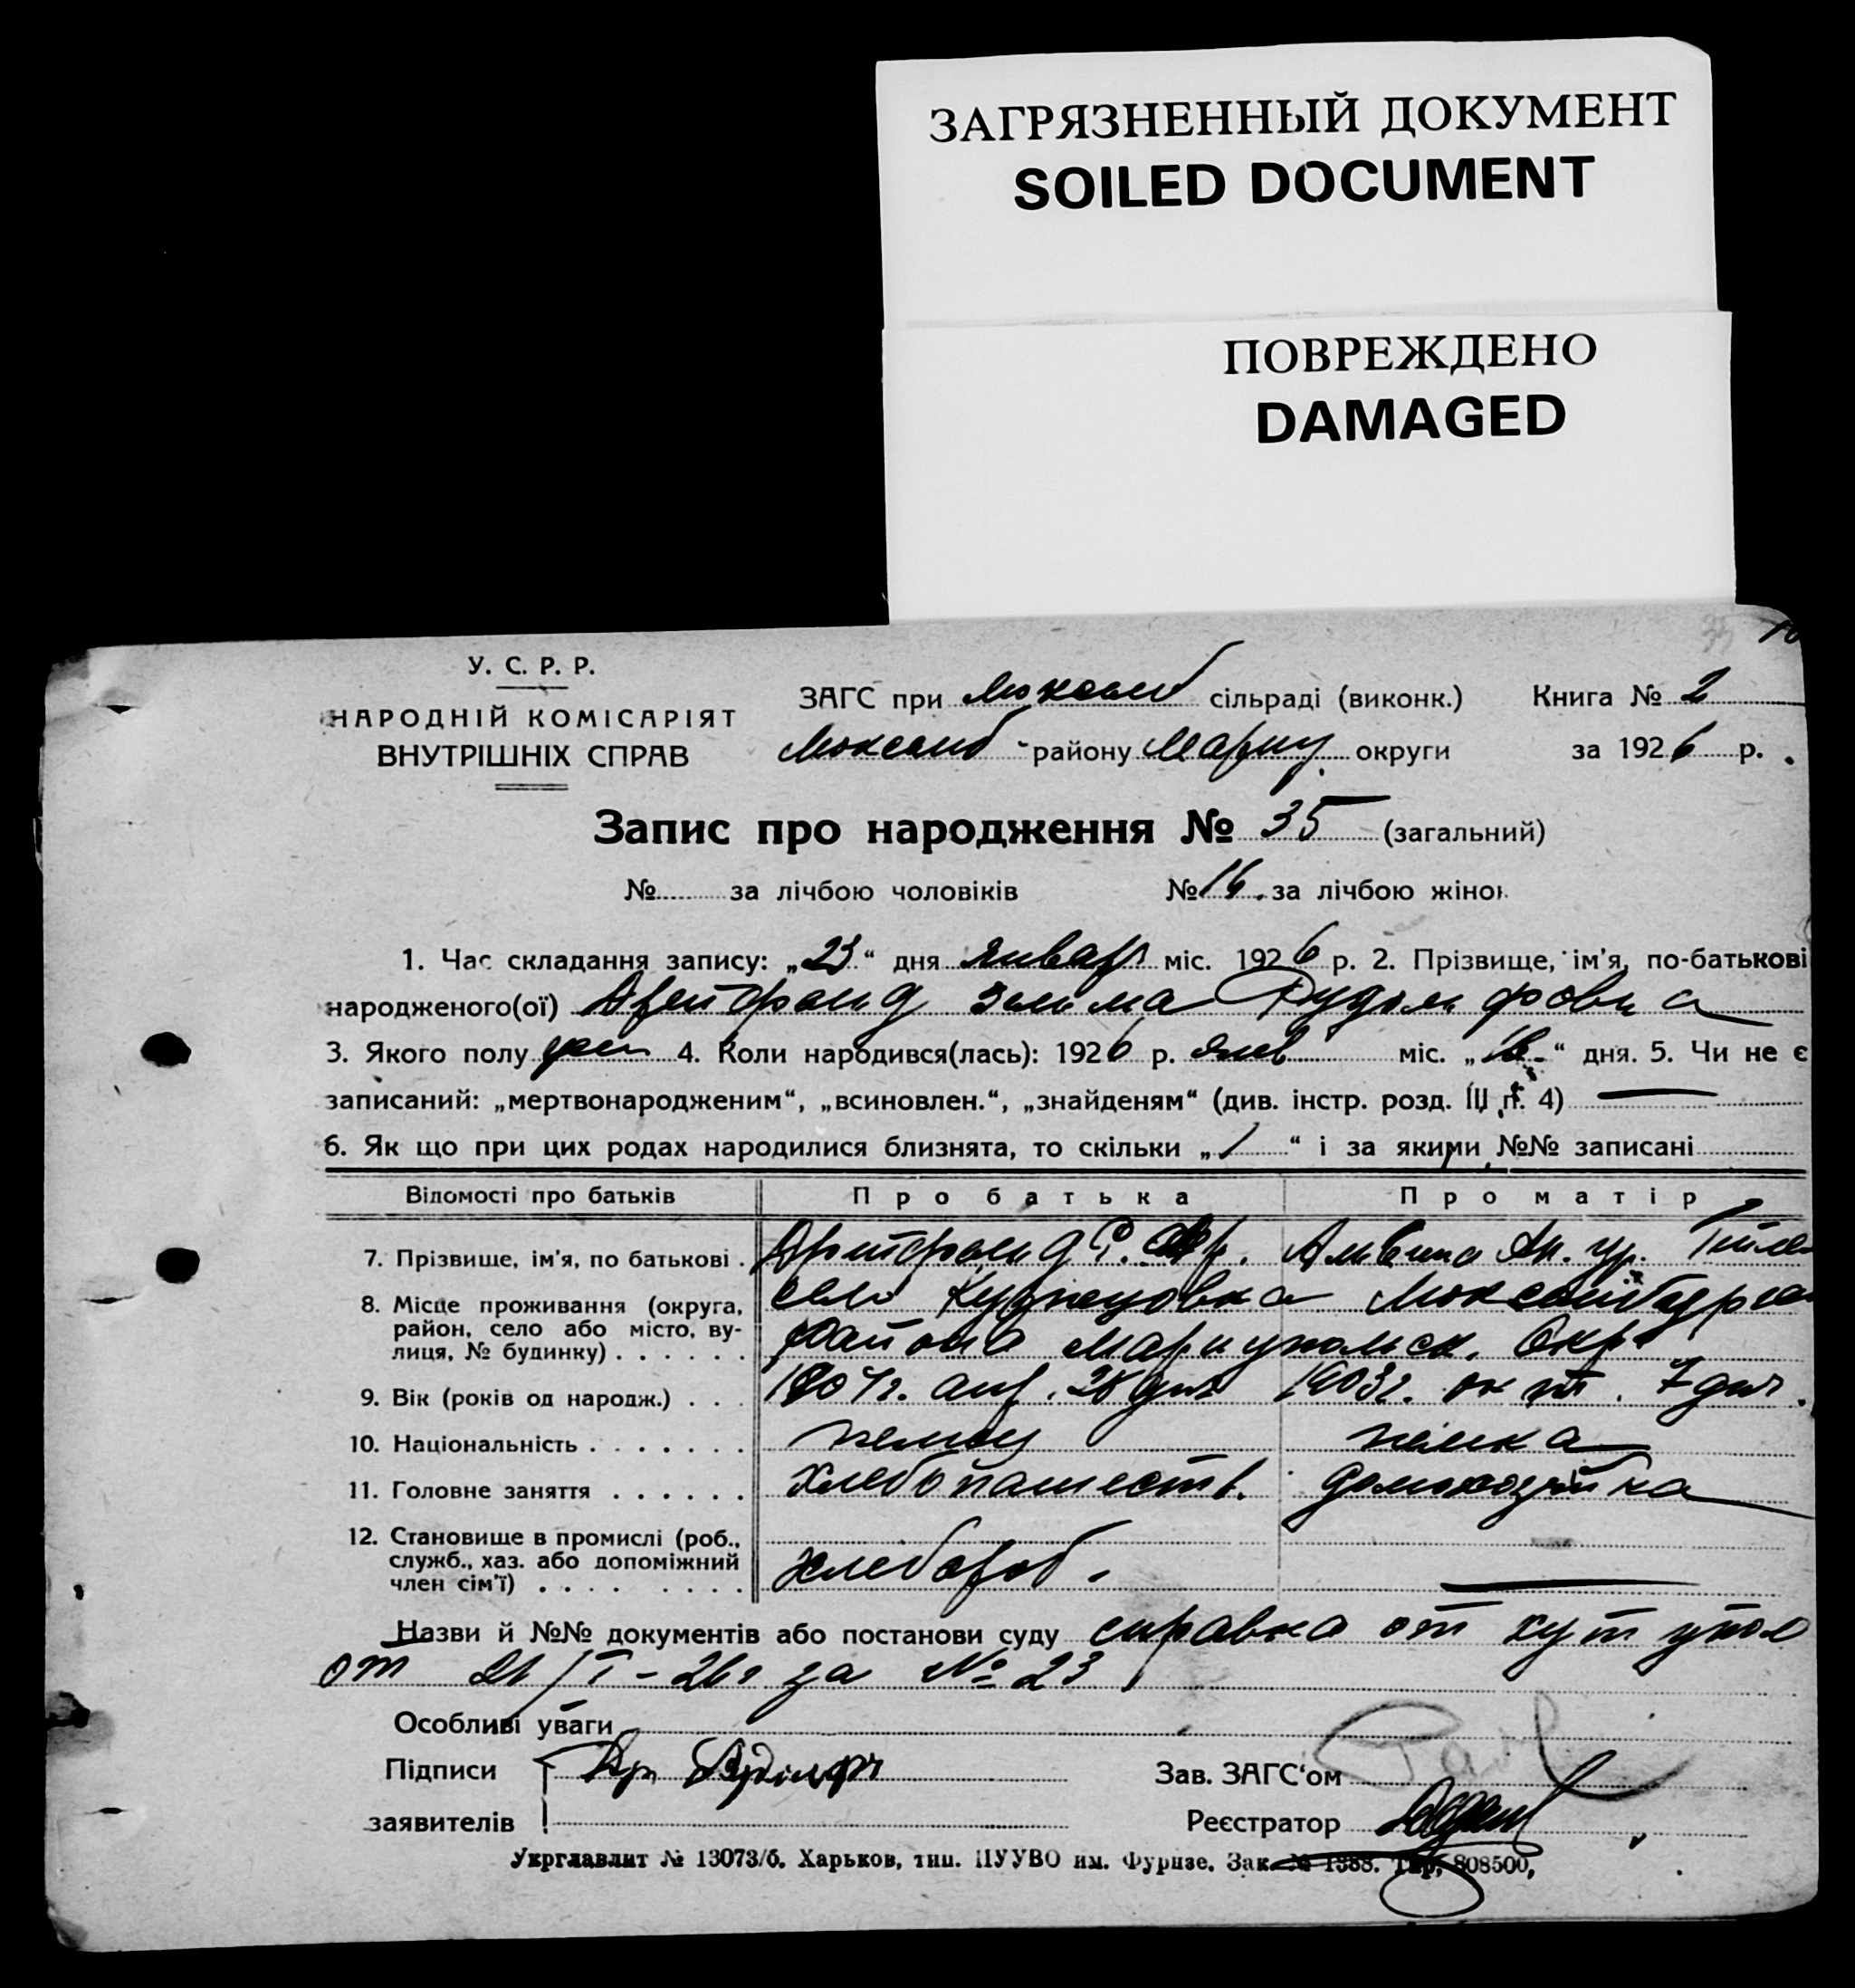 ЗАГРЯЗНЕННЫЙ ДОКУМЕНТ
SOILED DOCUMENT
ПОВРЕЖДЕНО
DAMAGED
35
У. С. Р. Р.
НАРОДНІЙ КОМІСАРІЯТ
ВНУТРІШНІХ СПРАВ
ЗАГС при Люксемб сільраді (виконк.) Книга № 2
Люксемб району Мариу. округи за 1926 р.
Запис про народження № 35 (загальний)
№ за лічбою чоловіків № 16. за лічбою жінок
1. Час складання запису: „23“ дня январ міс. 1926 р. 2. Прізвище, ім'я, по-батькові
народженого(ої) Рудольфовна
3. Якого полу жен 4. Коли народився(лась): 1926 р. янв міс. „ “ дня. 5. Чи не є
записаний: „мертвонародженим“, „всиновлен.“, „знайденям“ (див. інстр. розд. III п. 4) —
6. Як що при цих родах народилися близнята, то скільки „ “ і за якими №№ записані
Відомості про батьків Про батька Про матір
7. Прізвище, ім'я, по батькові . Альвина
8. Місце проживання (округа, район, село або місто, вулиця, № будинку) . . . . . . село Кузнецовка
района Мариупольск. Окр.
9. Вік (років од народж.) . . . 1903г. окт. 7 дня.
10. Національність . . . . . . . немец немка
11. Головне заняття . . . . . . хлебопашеств. домохозяйка
12. Становище в промислі (роб., служб., хаз. або допоміжний член сім'ї) . . . . . . . . хлебороб. —
Назви й №№ документів або постанови суду справка от хут упол
от 21/I-26г за № 23
Особливі уваги
Підписи
заявителів
Зав. ЗАГС'ом
Реєстратор
Укрглавлит № 13073/б. Харьков, тип. ПУУВО им. Фрунзе. Зак. № 1388. Тир. 808500,